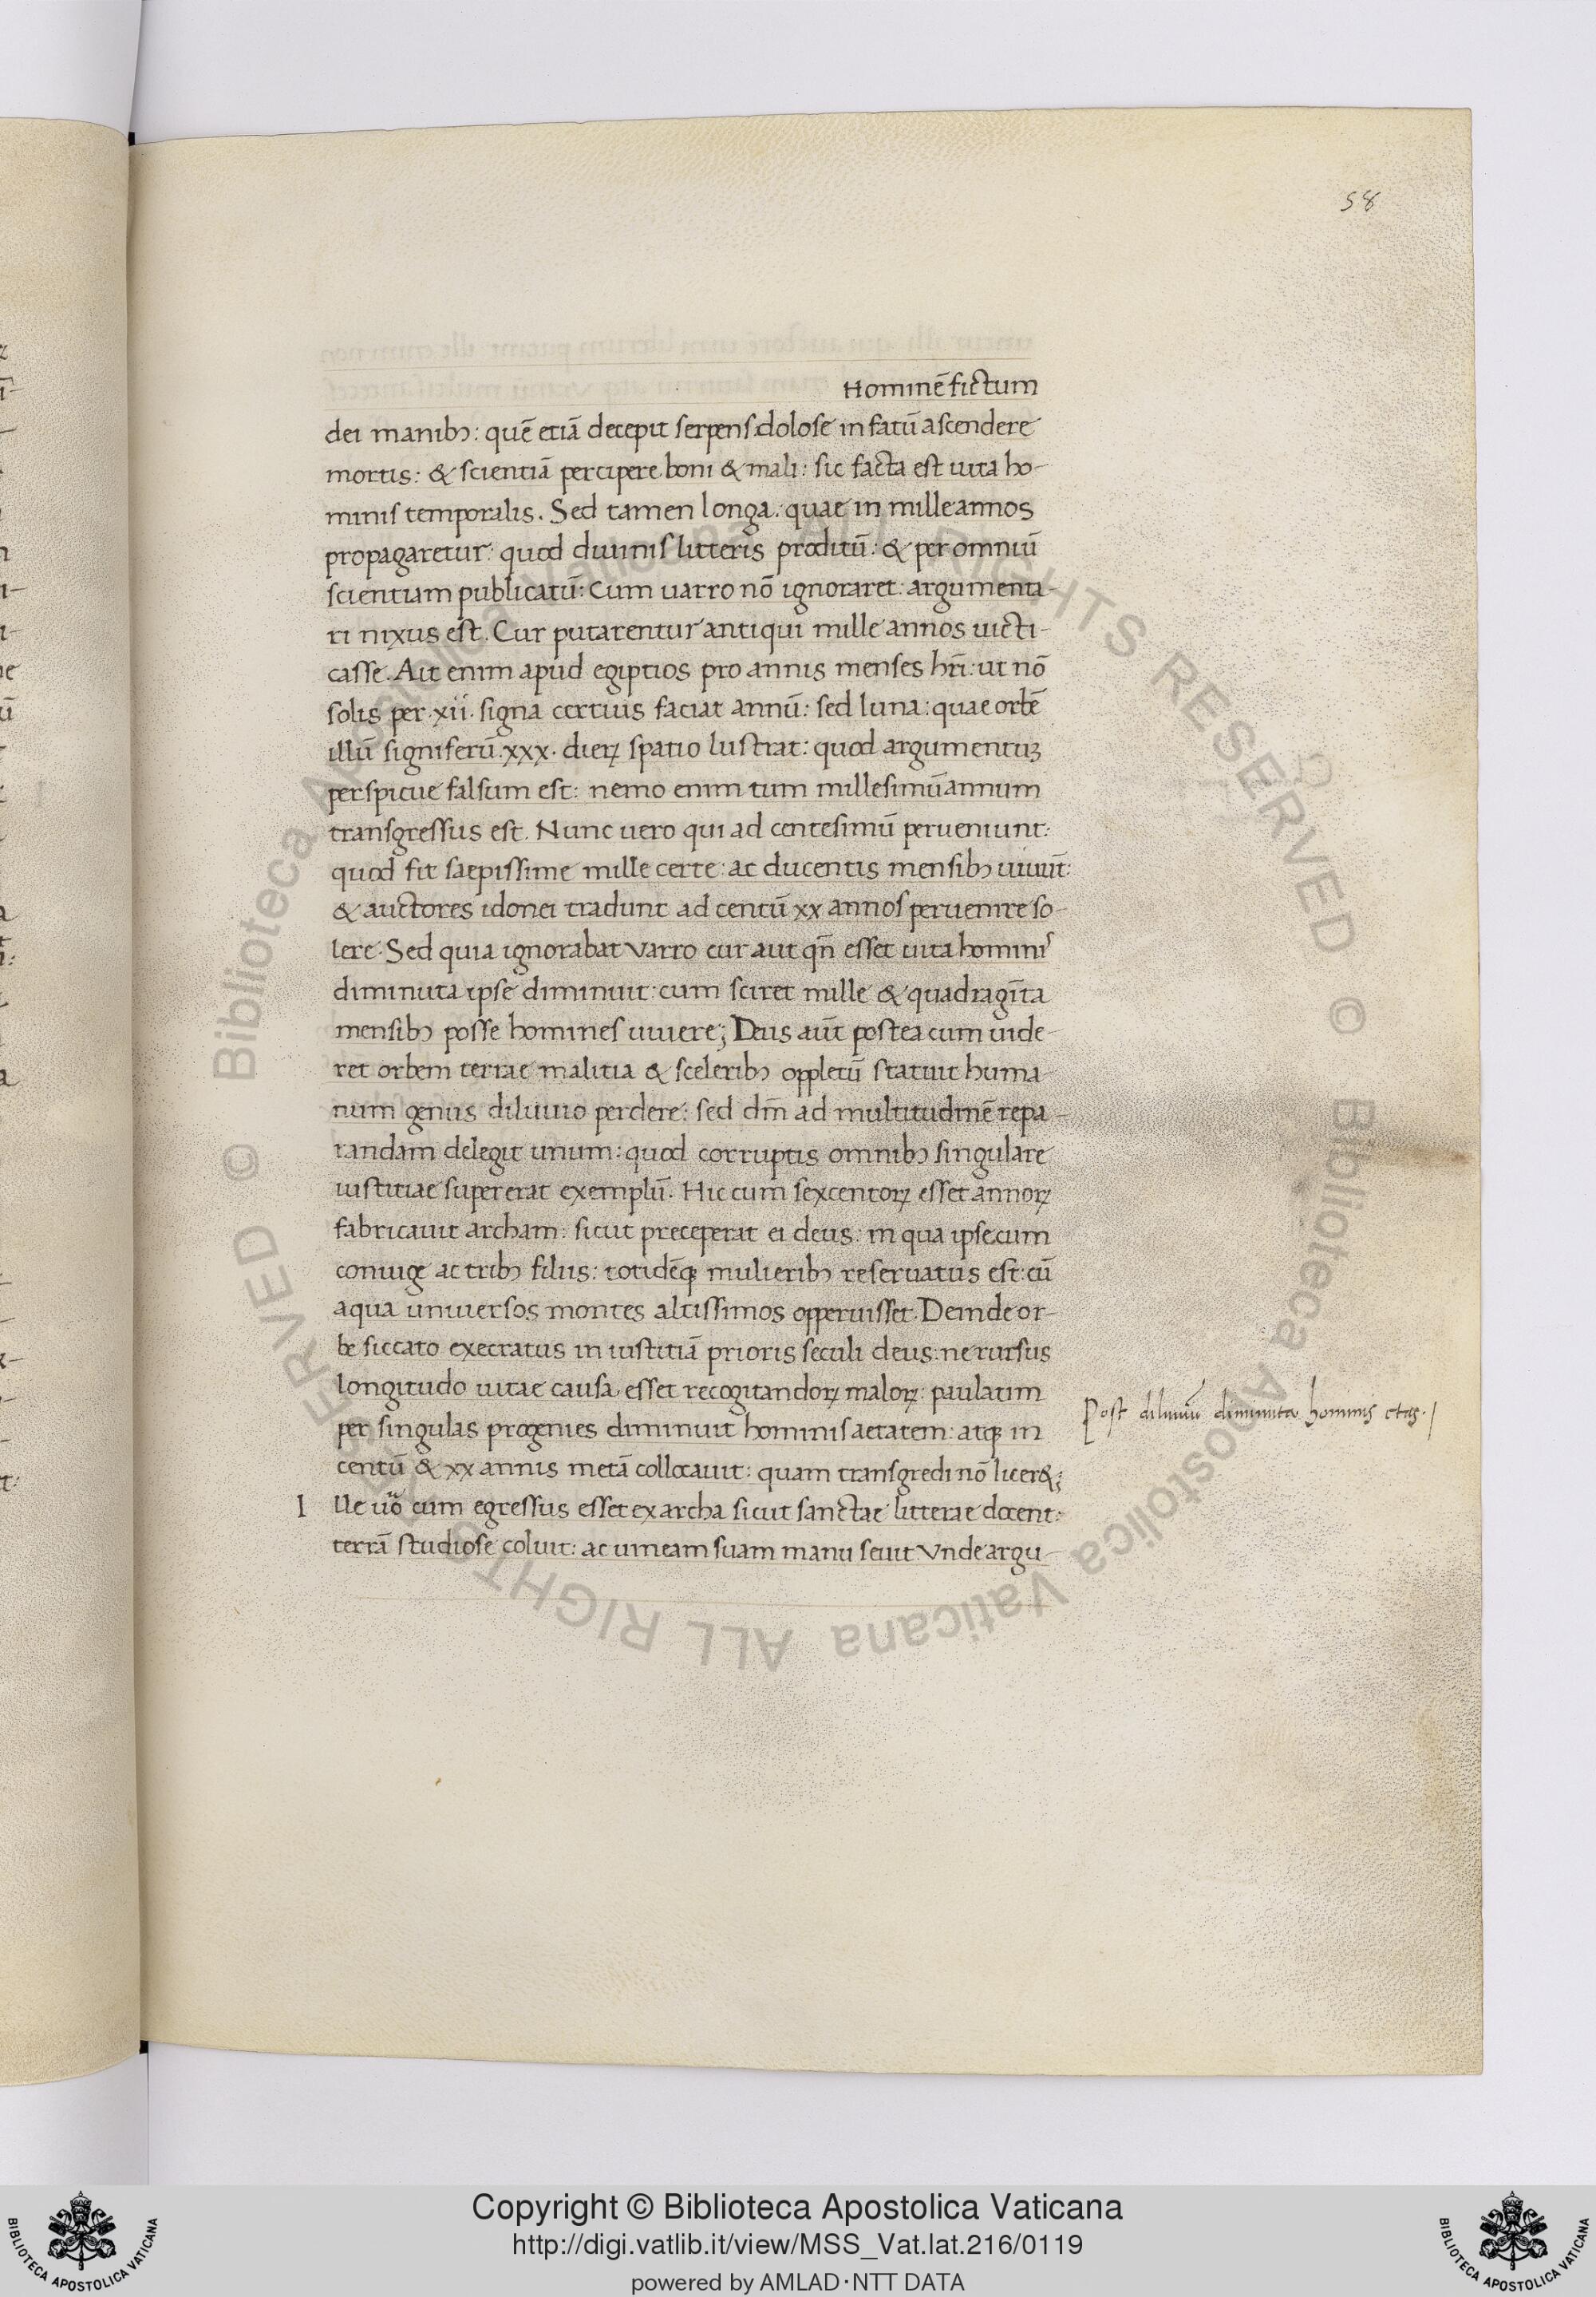 58
Hominē fictum
dei manibꝫ: quē etiā decepit serpens dolose in fatū ascendere
mortis: & scientiā percipere boni & mali: sic facta est uita ho-
minis temporalis. Sed tamen longa. quae in mille annos
propagaretur: quod diuinis litteris proditū: & per omniū
scientiam publicatū: Cum uarro nō ignoraret: argumenta-
ri nixus est. Cur putarentur antiqui mille annos uicti-
casse. Ait enim apud egiptios pro annis menses hr̄i: ut nō
solis per .xii. signa certius faciat annū: sed luna: quae orbē
illū signiferū .xxx. dieꝝ spatio lustrat: quod argumentuꝫ
perspicue falsum est: nemo enim tum millesimū annum
transgressus est. Nunc uero qui ad centesimū perueniunt:
quod fit saepissime mille certe: ac ducentis mensibꝫ uiuūt:
& auctores idonei tradunt ad centū xx annos peruenire so-
lere. Sed quia ignorabat Varro cur aut qn̄ esset uita hominis
diminuta ipse diminuit: cum sciret mille & quadragīta
mensibꝫ posse homines uiuere; Deus aūt postea cum uide-
ret orbem terrae malitia & sceleribꝫ oppletū statuit huma-
num genus diluuio perdere: sed dm̄ ad multitudinē repa-
randam delegit unum: quod corruptis omnibꝫ singulare
iustitiae supererat exemplū. Hic cum sexcentoꝝ esset annoꝝ
fabricauit archam: sicut preceperat ei deus: in qua ipse cum
coniuge ac tribꝫ filiis: totidēqꝫ mulieribꝫ reseruatus est: cū
aqua uniuersos montes altissimos opperuisset. Deinde or-
be siccato execratus in iustitiā prioris seculi deus: ne rursus
longitudo uitae causa esset recogitandoꝝ maloꝝ: paulatim
per singulas progenies diminuit hominis aetatem: atqꝫ in
centū & xx annis metā collocauit: quam transgredi nō licer&;
Post diluuiū diminuta hominis etas.
I lle uō cum egressus esset ex archa sicut sanctae litterae docent:
terrā studiose coluit: ac uineam suam manu seuit Vnde argu-
Copyright © Biblioteca Apostolica Vaticana
http://digi.vatlib.it/view/MSS_Vat.lat.216/0119
powered by AMLAD·NTT DATA
BIBLIOTECA APOSTOLICA VATICANA
BIBLIOTECA APOSTOLICA VATICANA
© Biblioteca Apostolica Vaticana ALL RIGHTS RESERVED © Biblioteca Apostolica Vaticana ALL RIGHTS RESERVED